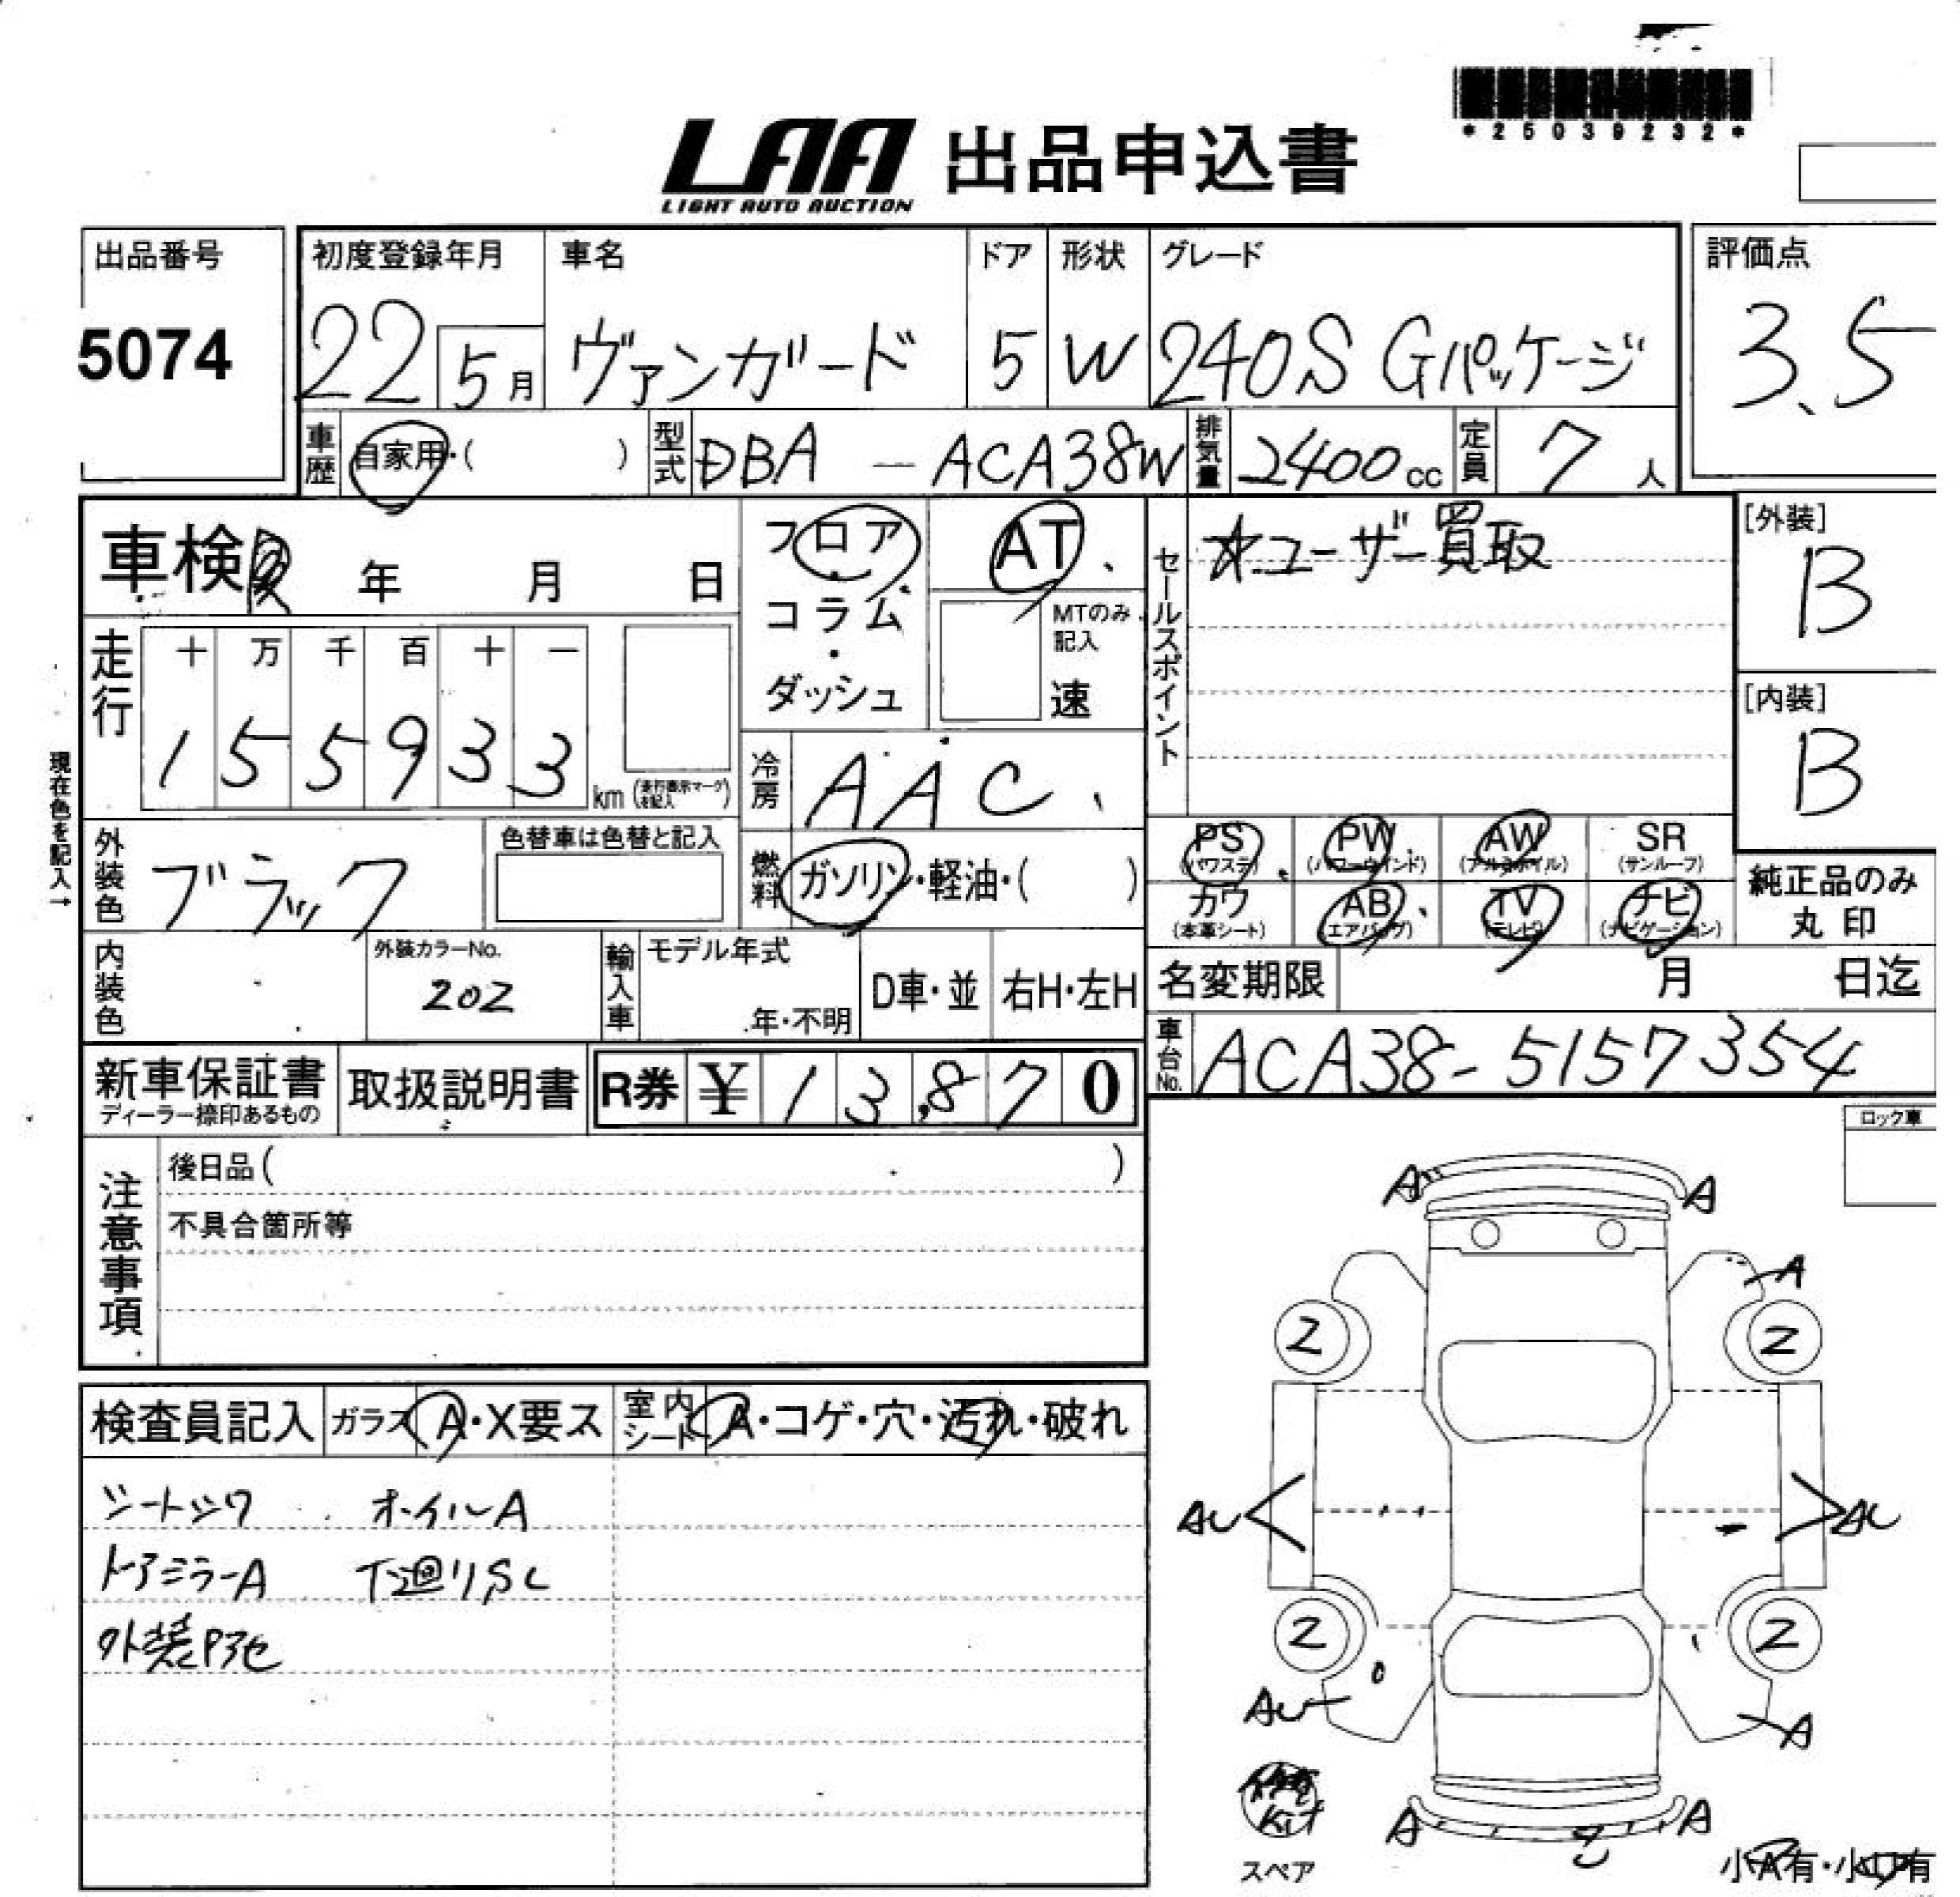 *25039232*
LAA 出品申込書
LIGHT AUTO AUCTION
出品番号
5074
初度登録年月
22 5月
車名
ヴァンガード
ドア
5
形状
W
グレード
240S Gパッケージ
評価点
3.5
車歴 自家用・( )
型式 DBA - ACA38W
排気量 2400cc
定員 7人
車検 年 月 日
フロア・コラム・ダッシュ
AT
MTのみ記入
速
セールスポイント
☆ユーザー買取
[外装]
B
[内装]
B
走行
十 万 千 百 十 一
1 5 5 9 3 3 km (走行表示マークを記入)
冷房 AAC
現在色を記入→
外装色 ブラック
色替車は色替と記入
燃料 ガソリン・軽油・( )
PS (パワステ)
PW (パワーウインド)
AW (アルミホイル)
SR (サンルーフ)
カワ (本革シート)
AB (エアバッグ)
TV (テレビ)
ナビ (ナビゲーション)
純正品のみ
丸印
内装色
外装カラーNo.
202
輸入車
モデル年式
年・不明
D車・並
右H・左H
名変期限 月 日迄
車台No. ACA38-5157354
新車保証書
ディーラー捺印あるもの
取扱説明書
R券 ¥ 13,870
ロック車
注意事項
後日品( )
不具合箇所等
検査員記入
ガラス A・X要ス
室内シート A・コゲ・穴・汚れ・破れ
シートシワ オイルA
ドアミラーA 下廻りSC
外装P3セ
A A
A
2 2
AU AU
2 2
AU A
Kit
スペア
A A
小A有・小U有